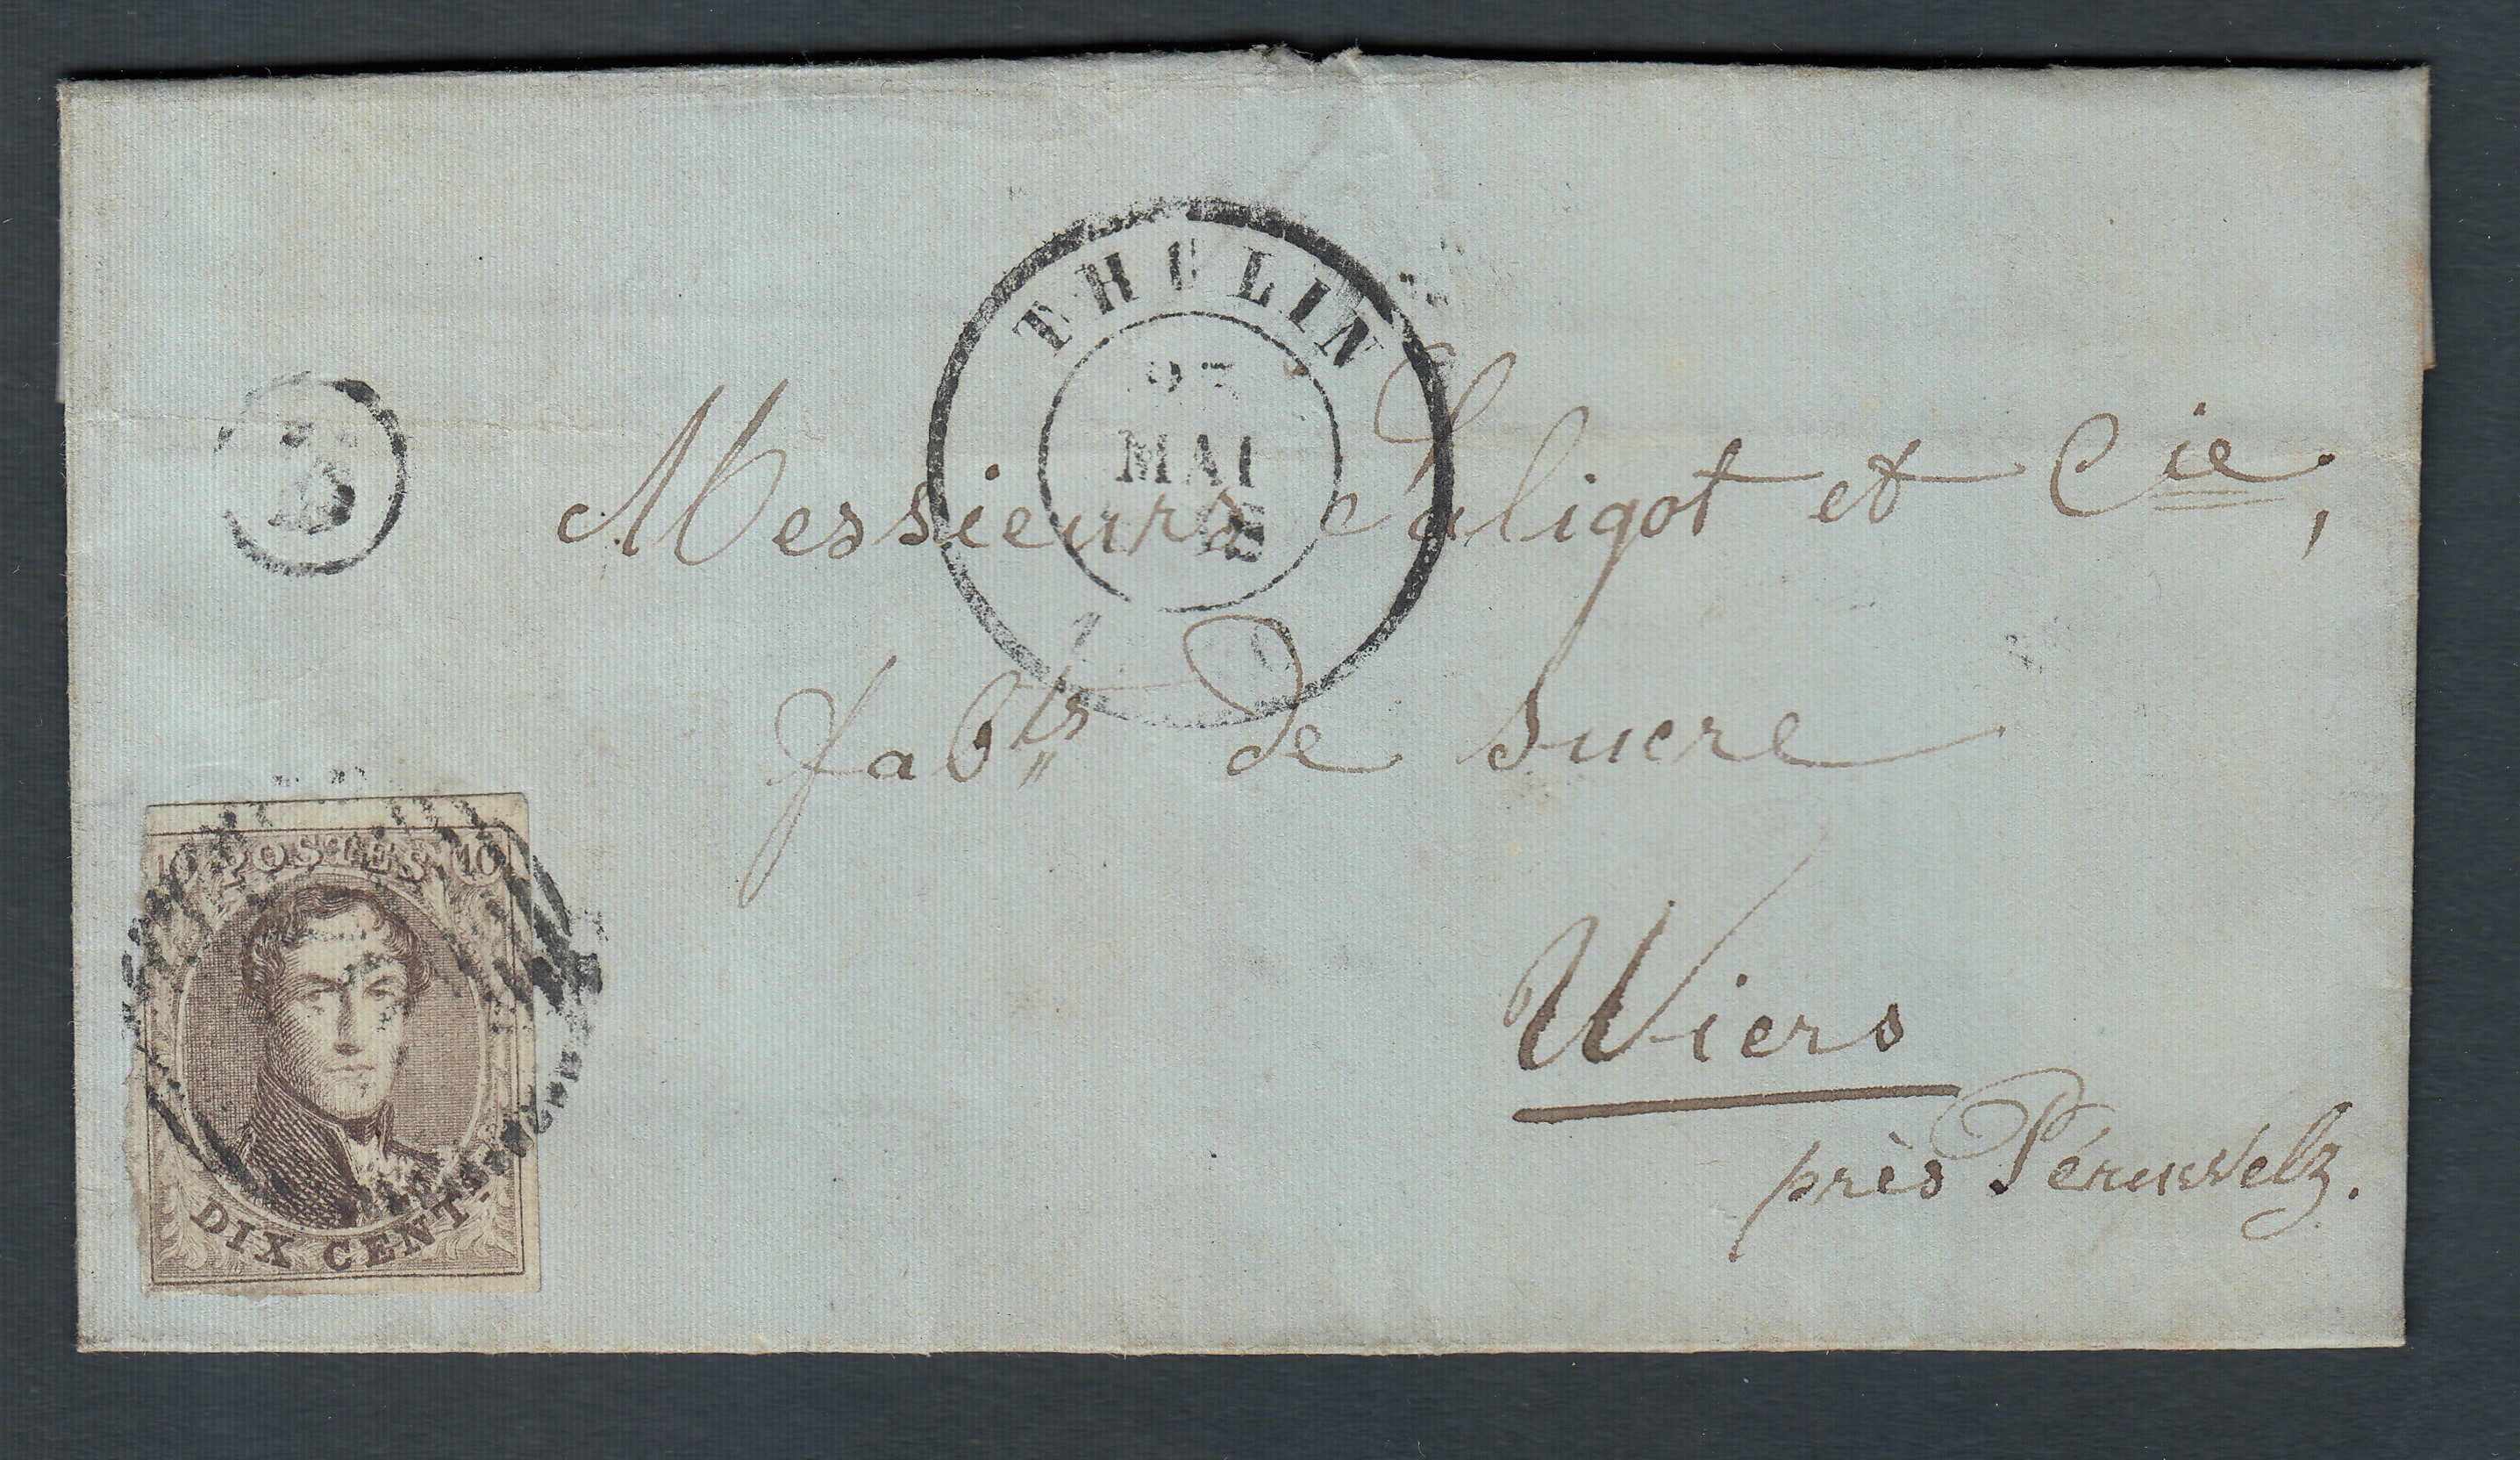 THULIN
MAI
Messieurs et Cie,
fabts de sucre
Wiers
près Péruwelz.
10 POSTES 10
DIX CENT.